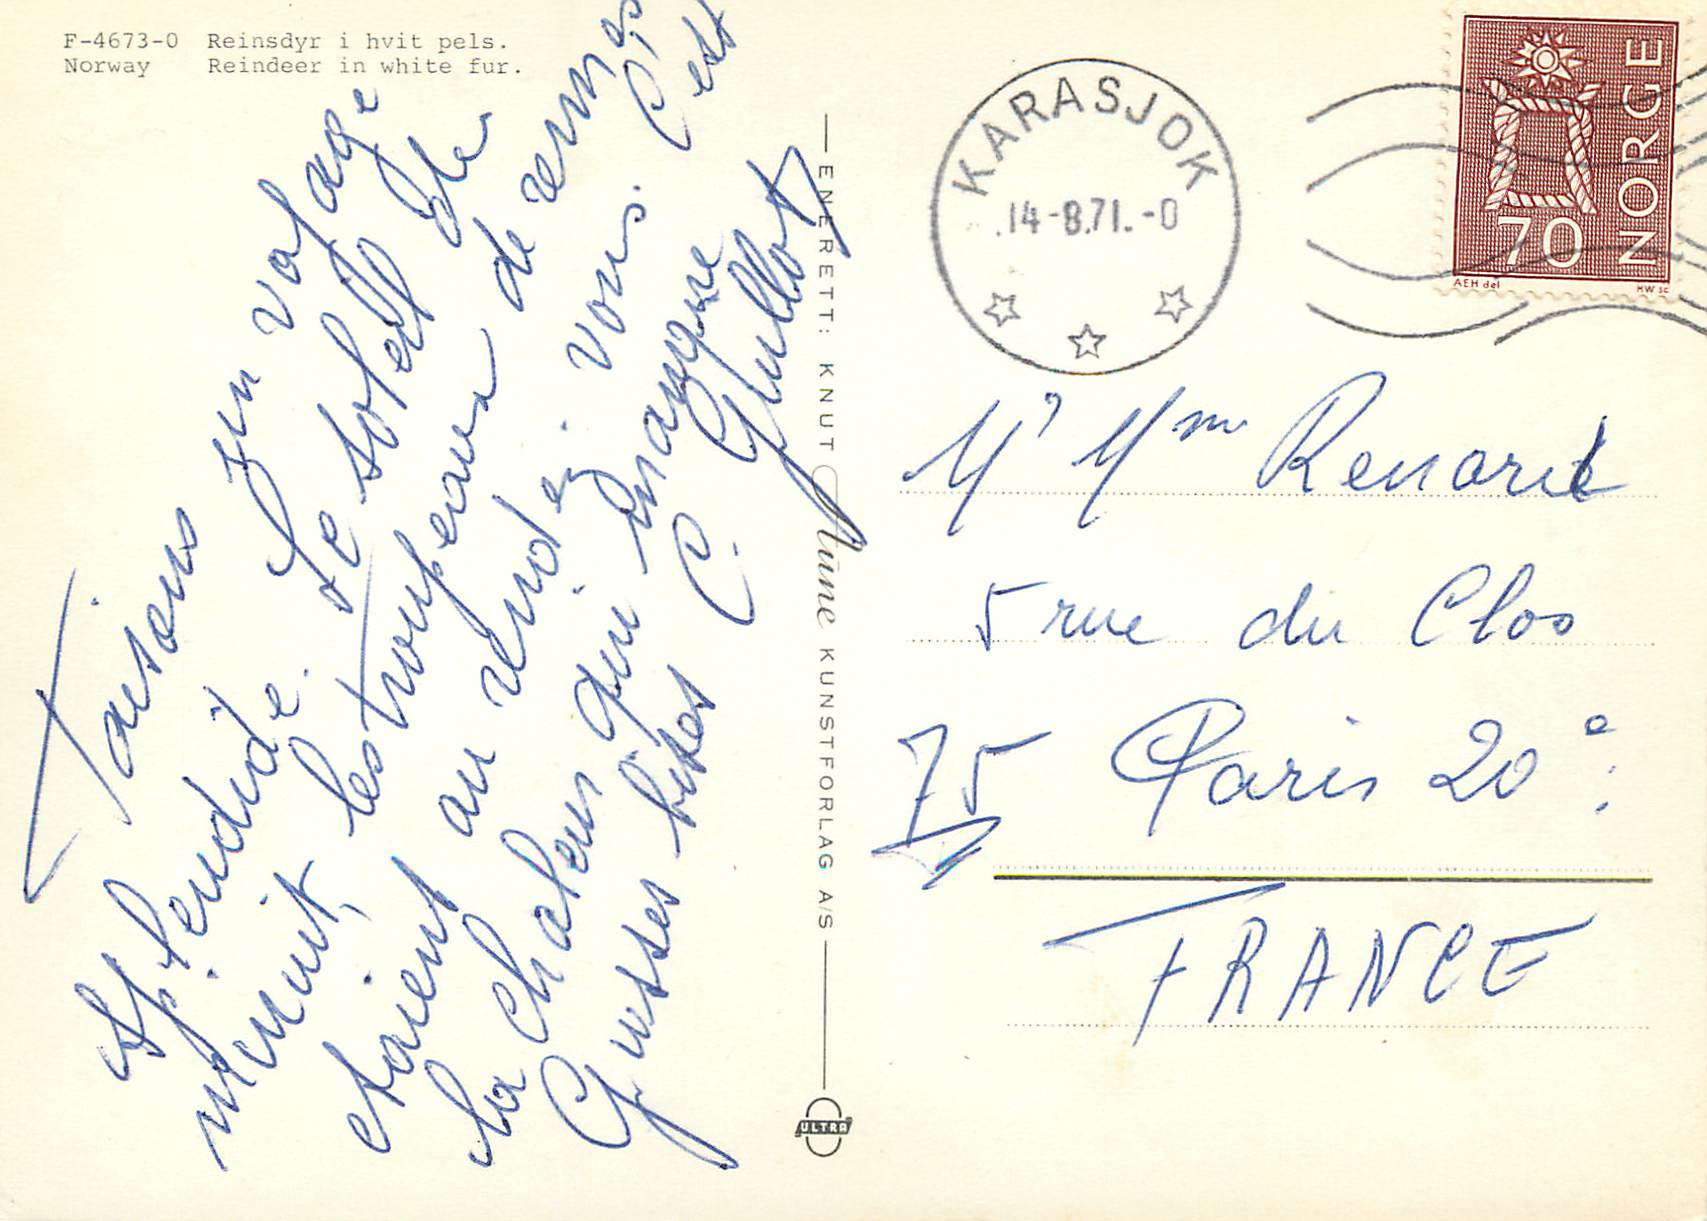 F-4673-0 Reinsdyr i hvit pels.
Norway Reindeer in white fur.
Faisons un voyage
splendide. Le soleil de
minuit, les troupeaux de rennes
étaient au rendez vous. C'est
la chaleur qui manque
Grosses bises C. Guillot
ENERETT: KNUT Aune KUNSTFORLAG A/S
ULTRA
KARASJOK
14-8.71.-0
NORGE
70
AEH del
HW sc
Mr Mme Renard
5 rue du Clos
75 Paris 20e
FRANCE